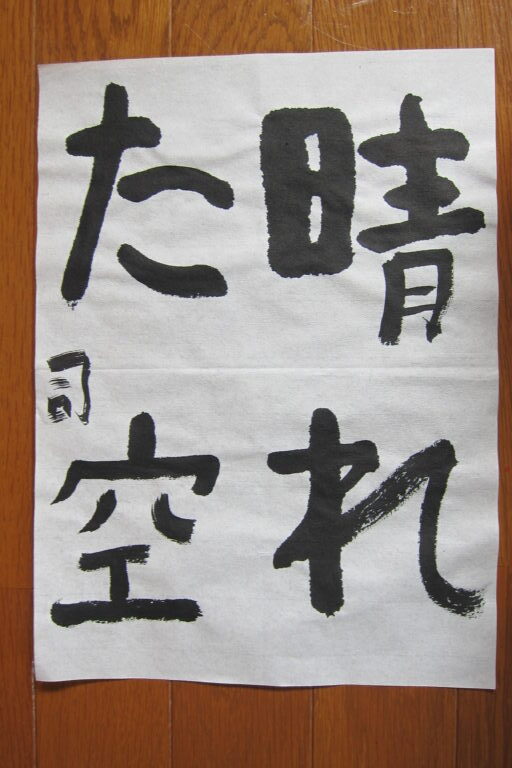 晴れ
た空
司